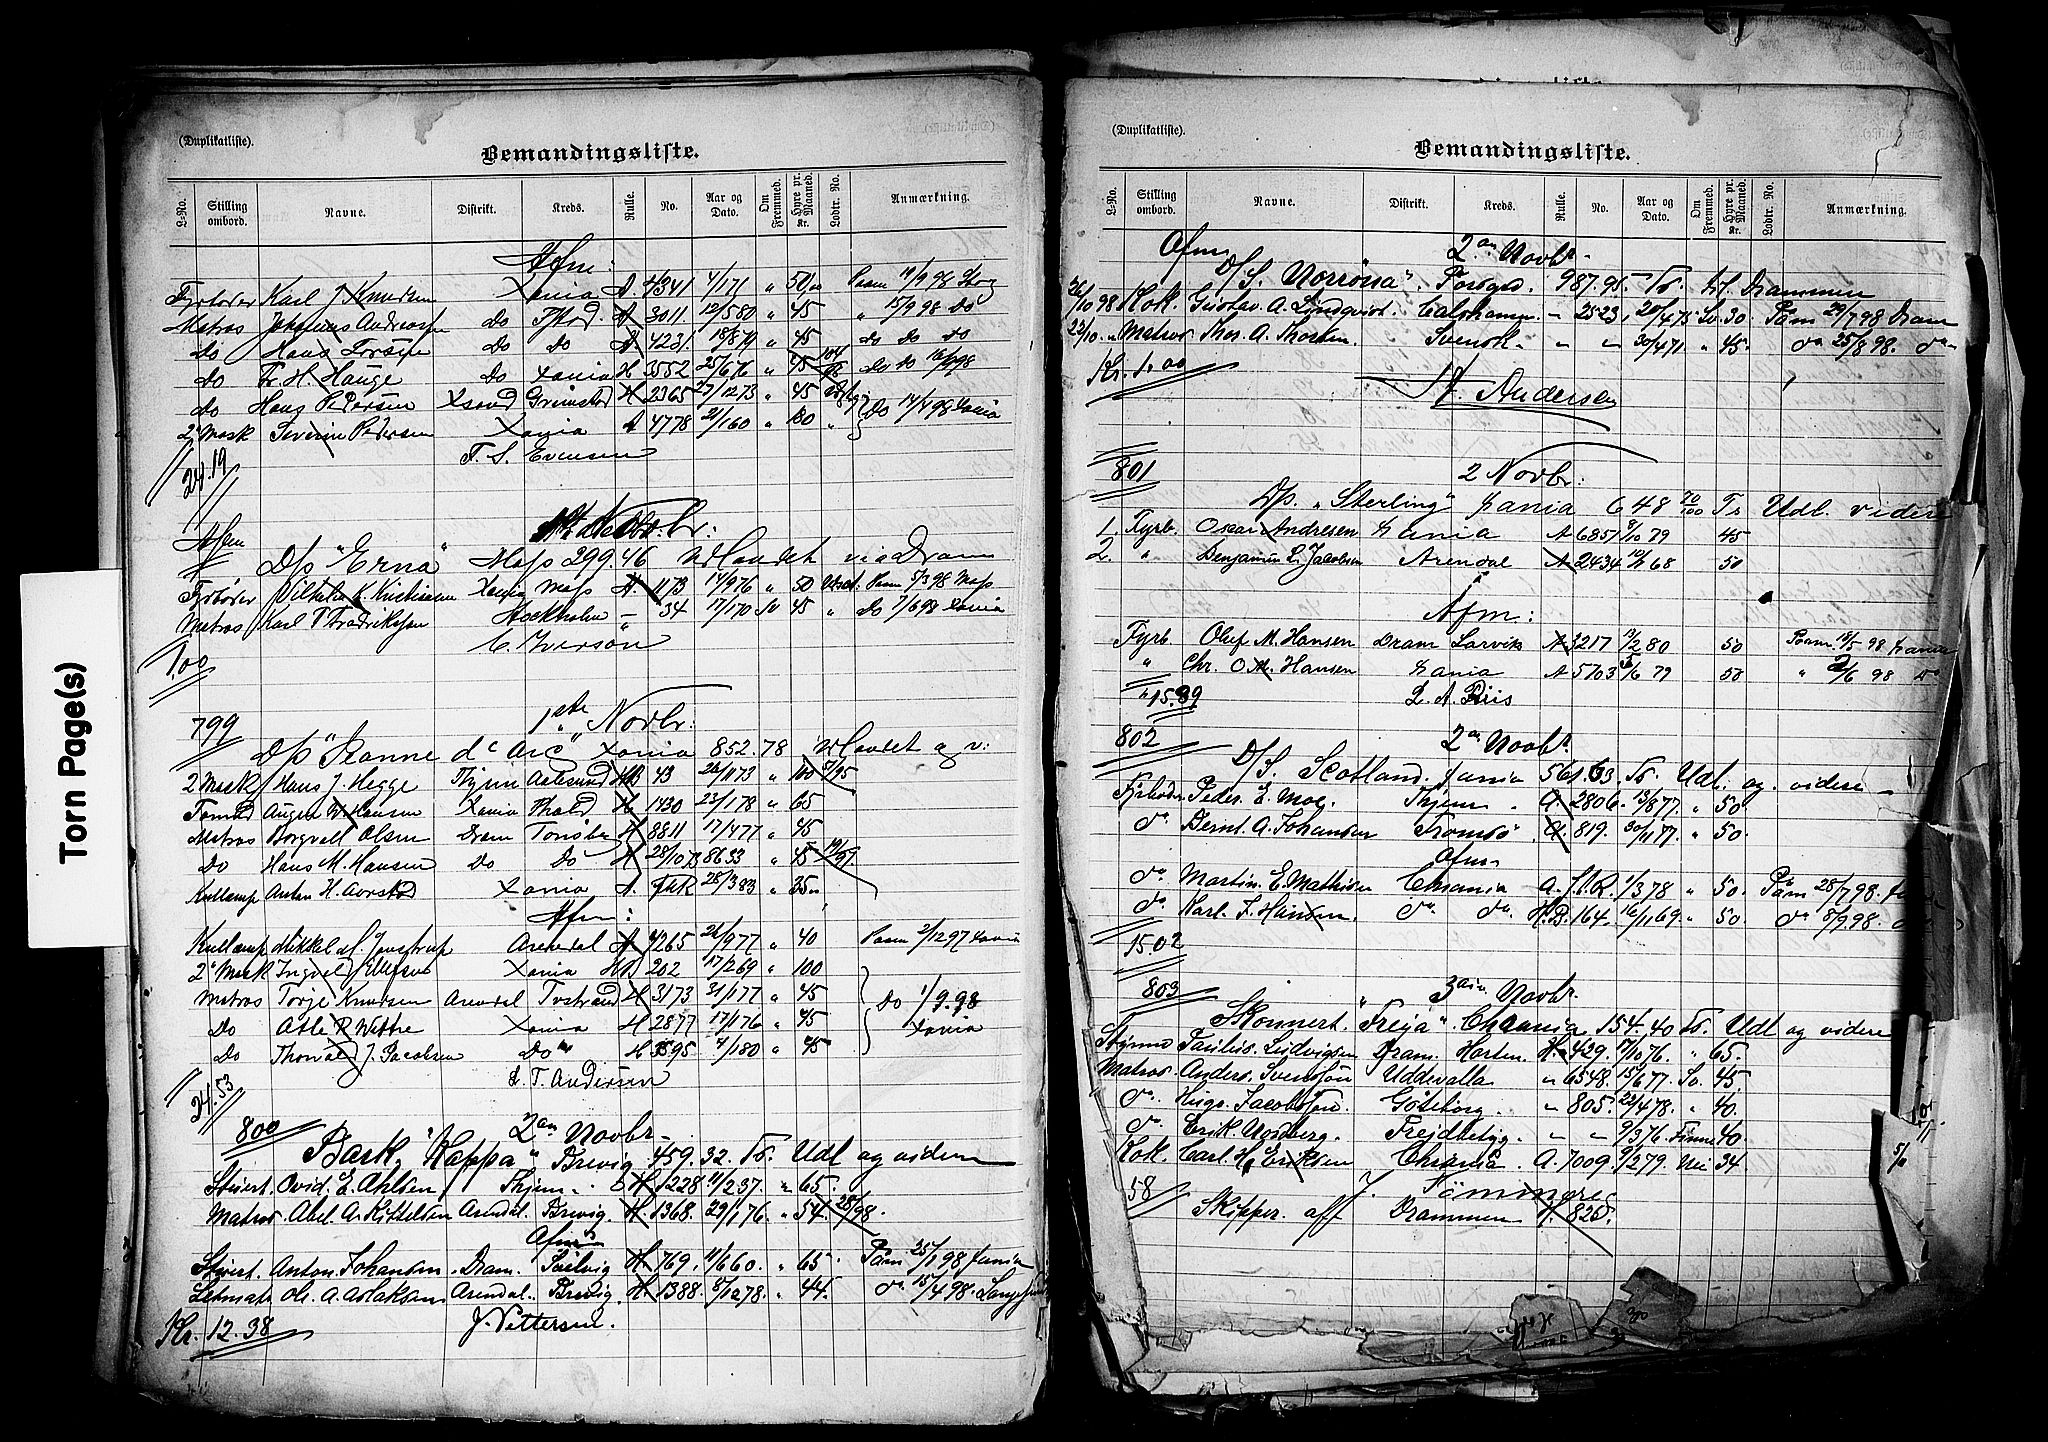 (Duplikatliste).
Bemandingsliste.
L-No. Stilling ombord. Navne. Distrikt. Kreds. Rulle. No. Aar og Dato. Om Fremmed. Hyre pr. Maaned. Kr. Lodtr. No. Anmærkning.
Afm:
Fyrbøder Karl J Knudsen Xania A 4341 4/171 " 50
Matros Johannes Andreassen Do A 3011 12/580 " 45 " 15/9 98 Do
Do Hans Larsen Do Do A 4231 18/879 " 45 Do Do Do
Do Fr. H. Hauge Do Xania H 3552 25/676 " 45
Do Hans Pedersen Xsand Grimstad H 2365 27/1273 " 45 Do 14/4 98 Xania
2 Mask Severin Pedersen Xania A 4778 21/160 "
T. S. Evensen
24.19
Afm
D/s "Erna" Moss 299.46 Udlandet via Dram
Fyrbøder Vilhelm K. Kristiansen Xania Moss A. 1173 14/976 " 50 Paam 5/3 98 Moss
Matros Karl T Fredriksson Stockholm - 34 17/170 Sv 45 " Do 7/6 98 Xania
C. Iverson
1,00
799 1ste Novbr:
D/s "Jeanne d'Arc" Xania 852.78 Udlandet og v:
2 Mask Hans J. Hegge Thjem Aalesund HB 43 26/173 " 100 5/95
Tømd August W Hansen Xania H 1430 23/178 " 65
Matros Borgvell Olsen Dram Tønsbe H 8811 17/477 " 45
Do Hans M. Hansen Do Do H 28/1073 8633 " 45
Kullemp Anton H. Aorstad Xania A. 28/383 " 35
Afm:
Kullemp Mikkel Arendal A 4265 26/977 " 40 Paam 2/1297 Xania
2 Mask Ingvald Ellefsen Xania HB 202 17/269 " 100
Matros Torje Knudsen Arendal Tvstrand H 3173 31/177 " 45 Do 1/9.98
Do Atle R Wettre Xania H 2877 17/176 " 45 Xania
Do Thorvald J. Jacobsen Do H 3595 4/180 " 45
L. T. Andersen
24.53
800 2den Novbr
Bark "Kappa" Brevig 459.32. Tr. Udl og videre
Stuert. Ovid. E. Ahlsen Thjem. H. 1228 11/237. " 65.
Matros. Abel. A. Kittelsen Arendal. Brevig. H. 1368. 29/176. " 54. 28/98.
Afm
Stuert. Anton Johansen. Dram. H. 769. 11/660. " 65 Paam 25/1 98 Xania
Letmatr. Ole A. Aslaksen Arendal. Brevig. H. 1388. 8/1278. " 44. do 15/4 98. Langesund
Kr. 12.38 J. Pettersen.
(Duplikatliste).
Bemandingsliste.
L-No. Stilling ombord. Navne. Distrikt. Kreds. Rulle. No. Aar og Dato. Om Fremmed. Hyre pr. Maaned. Kr. Lodtr. No. Anmærkning.
Afm 2den Novbr.
D/S. "Norröna". Porsgrd. 987.95. Tr. til Drammen
26/10 98 Kok. Gustav A. Lindqvist. Carlshamn. - 2523. 20/475 Sv. 30. Paam 29/7 98 Dram
22/10 " Matros Thos. A. Svensk. " " 30/471 " 45. do 25/8 98. do
Kr. 1.00
A. Andersen
801 2 Novbr:
D/s. "Sterling" Xania 648 70/100 Tr Udl. videre
1. Fyrb. Oscar Andresen Xania A 6857 8/10 79 45
2. " Benjamin L. Jacobsen Arendal A 2434 12/1 68 50
Afm:
Fyrb Oluf M. Hansen Dram Larvik A 3217 13/2 80 50 Paam 18/5 98 Xania
" Chr. Hansen Xania A 5703 5/6 79 50 " 2/6 98 Do
15.89 L. A. Friis
802 2den Novbr.
D/S. Scotland. Xania 561.63. Tr. Udl. og. videre
Fyrbøder Peder. E. Moe. Thjem. A. 2806. 13/877. " 50.
do Bernt. A. Johansen Tromsö. A. 819. 30/1177. " 50.
Afm
do Martin. E. Mathisen Chrania A. 1/378 " 50. Paam 28/7 98.
do Karl. J. Hansen. do do H.B. 164. 16/1169. " 50. do 8/9 98.
1502
803 3die Novbr.
Skonnert. "Freja" Chrania 154.40 Tr. Udl og videre
Styrmd Paulus. Ludvigsen Dram. Horten. H. 429. 17/1076. " 65.
Matros. Anders. Svensson Uddevalla " 6548. 15/677. Sv. 45.
do. Hugo. Jacobsson. Göteborg. " 805. 22/478. " 40.
do. Erik Nordberg. " " 9/376. Finne 40
Kok. Carl. H. Eriksen Chrania. A. 7009. 9/279. Nei 34
58
Skipper. aff Drammen A. 825.
Torn Page(s)